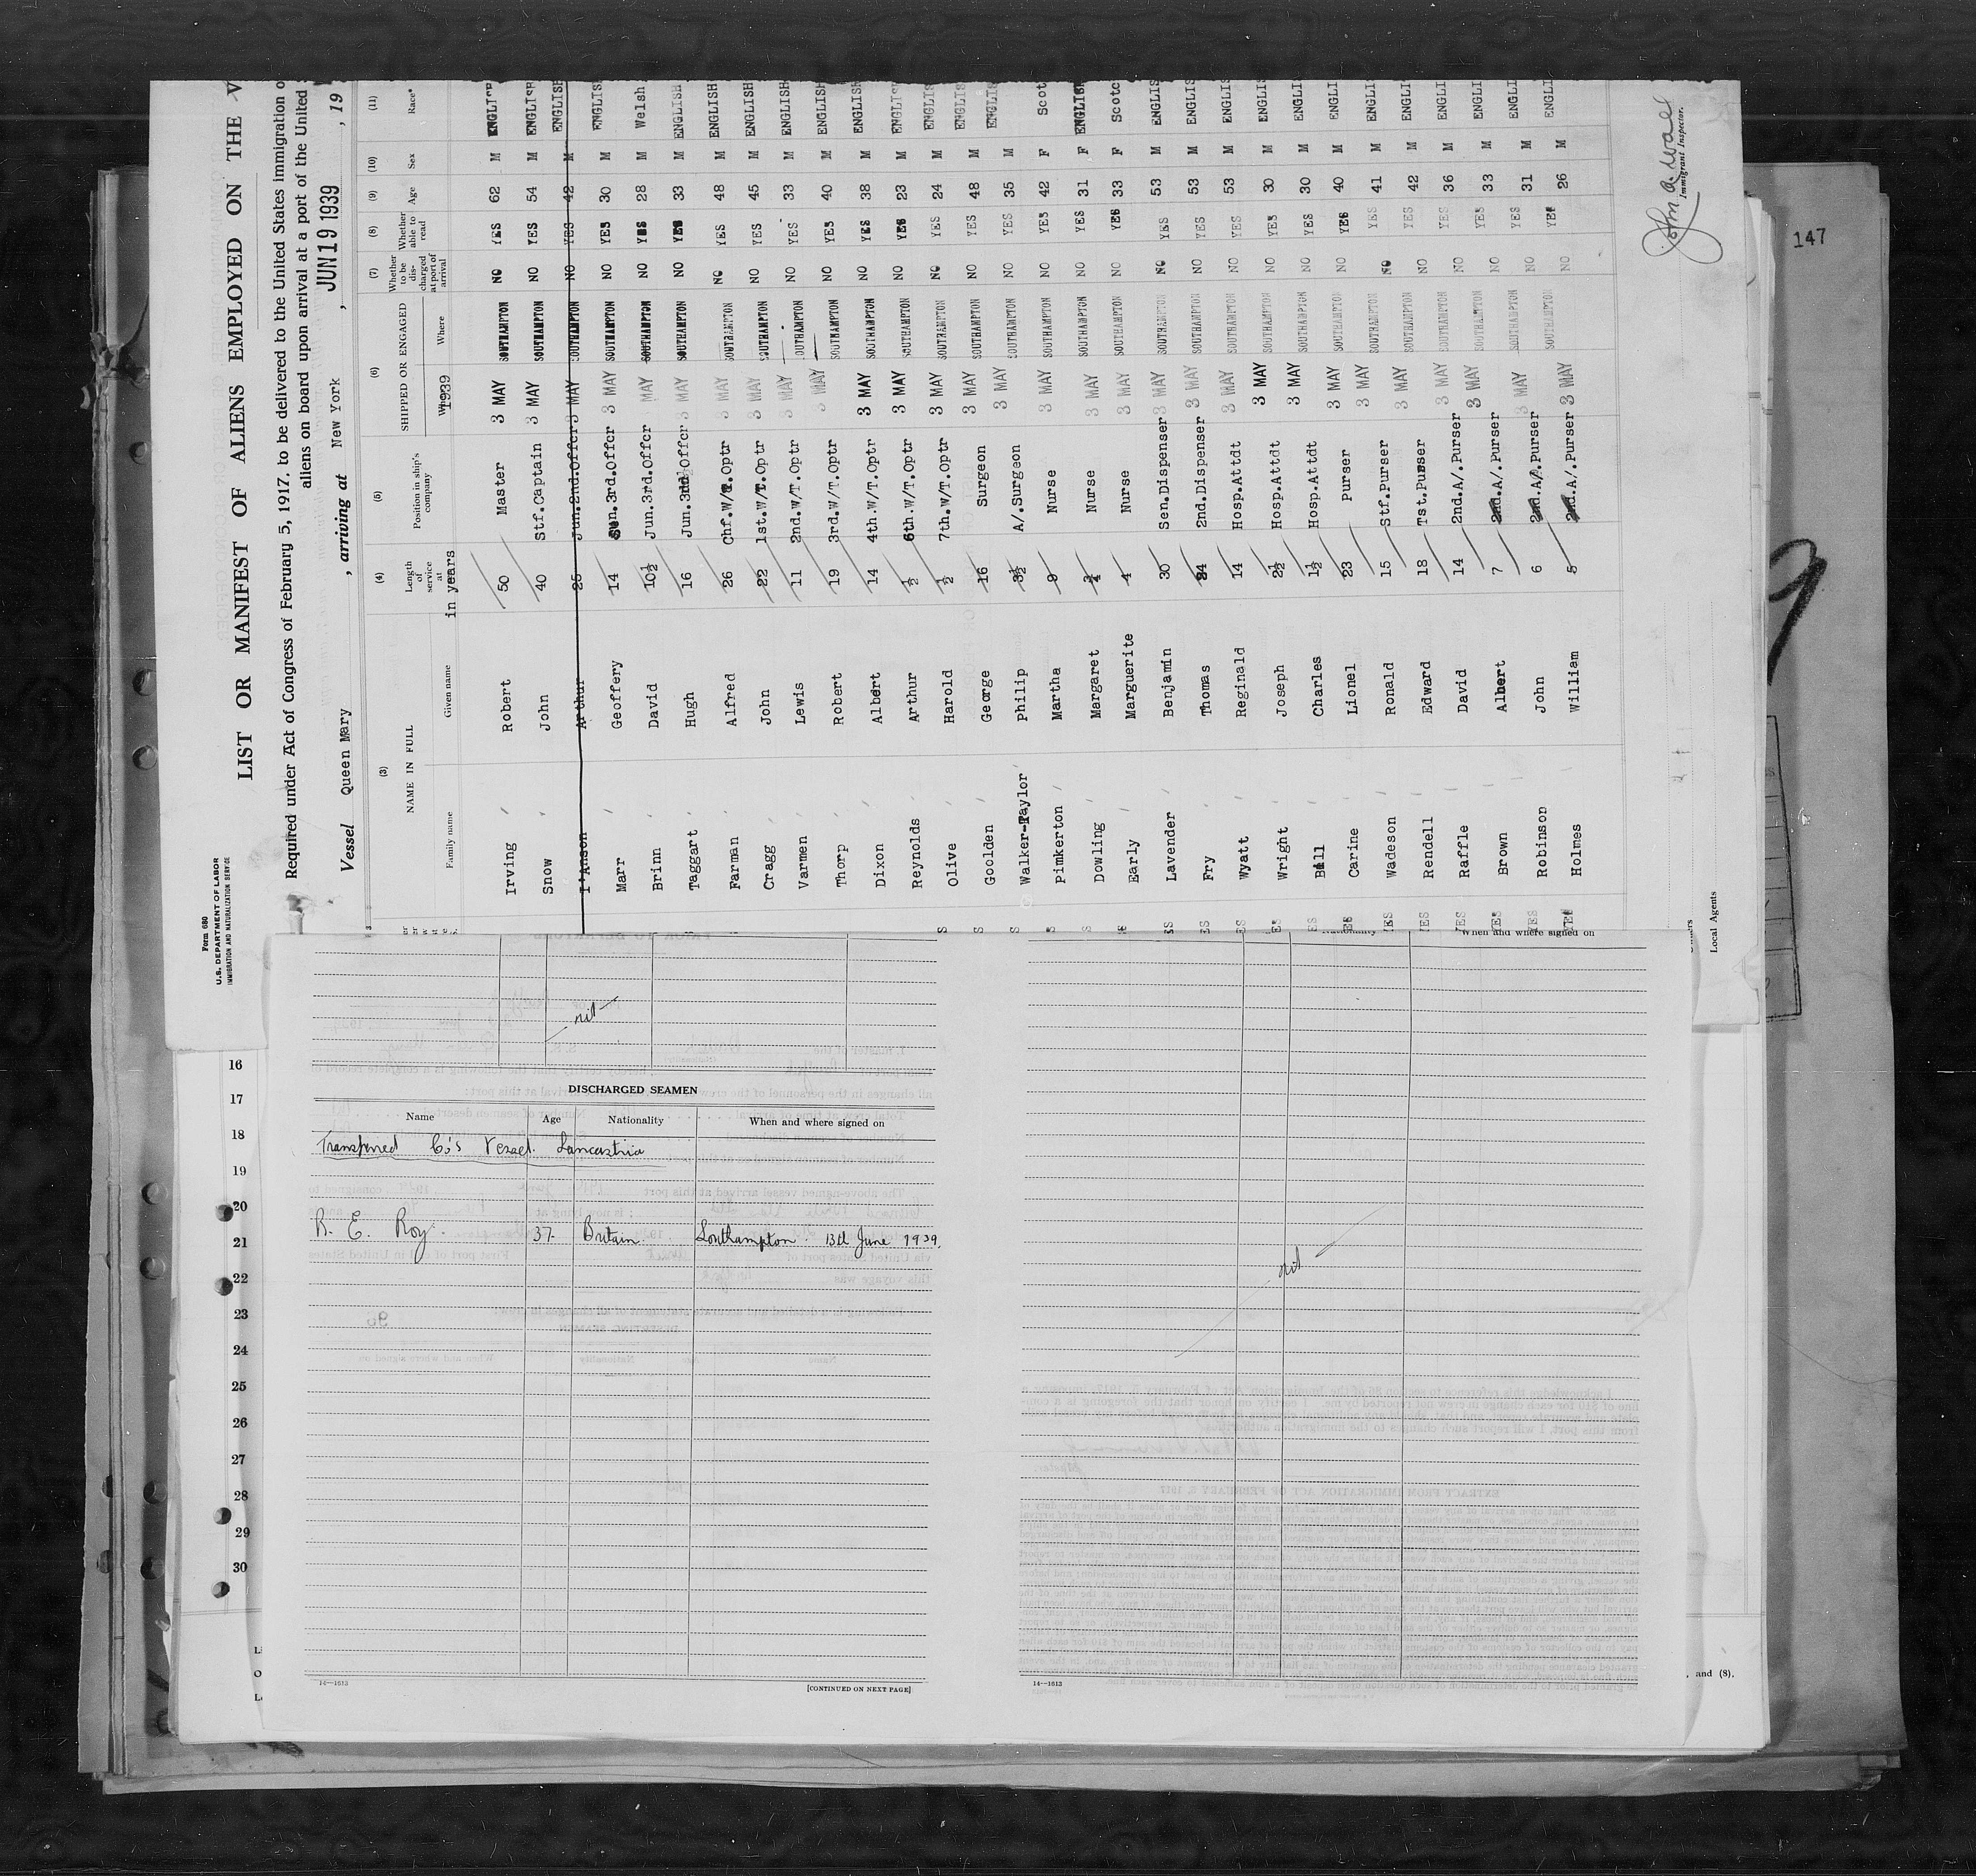 Form 680
U.S. DEPARTMENT OF LABOR
IMMIGRATION AND NATURALIZATION SERVICE
LIST OR MANIFEST OF ALIENS EMPLOYED ON THE V
Required under Act of Congress of February 5, 1917, to be delivered to the United States immigration o
aliens on board upon arrival at a port of the United
Vessel Queen Mary , arriving at New York , JUN 19 1939 , 19
(3) (4) (5) (6) (7) (8) (9) (10) (11)
NAME IN FULL Length of service at Position in ship's company SHIPPED OR ENGAGED Whether to be discharged at port of arrival Whether able to read Age Sex Race*
Family name Given name in years When 1939 Where
Irving Robert 50 Master 3 MAY SOUTHAMPTON NO YES 62 M ENGLISH
Snow John 40 Stf.Captain 3 MAY SOUTHAMPTON NO YES 54 M ENGLISH
I'Anson Arthur 25 Jun.2nd.Offcr 3 MAY SOUTHAMPTON NO YES 42 M ENGLISH
Marr Geoffery 14 Sen.3rd.Offcr 3 MAY SOUTHAMPTON NO YES 30 M ENGLIS
Brinn David 10½ Jun.3rd.Offcr MAY SOUTHAMPTON NO YES 28 M Welsh
Taggart Hugh 16 Jun.3rd.Offcr 3 MAY SOUTHAMPTON NO YES 33 M ENGLISH
Farman Alfred 26 Chf.W/T.Optr 3 MAY SOUTHAMPTON NO YES 48 M ENGLISH
Cragg John 22 1st.W/T.Optr 3 MAY SOUTHAMPTON NO YES 45 M ENGLISH
Varmen Lewis 11 2nd.W/T.Optr 3 MAY OUTHAMPTON NO YES 33 M ENGLISH
Thorp Robert 19 3rd.W/T.Optr 3 MAY SOUTHAMPTON NO YES 40 M ENGLISH
Dixon Albert 14 4th.W/T.Optr 3 MAY SOUTHAMPTON NO YES 38 M ENGLISH
Reynolds Arthur ½ 6th.W/T.Optr 3 MAY SOUTHAMPTON NO YES 23 M ENGLIS
Olive Harold ½ 7th.W/T.Optr 3 MAY SOUTHAMPTON NO YES 24 M ENGLIS
Goolden George 16 Surgeon 3 MAY SOUTHAMPTON NO YES 48 M ENGLIS
Walker-Taylor Philip 3½ A/.Surgeon 3 MAY SOUTHAMPTON NO YES 35 M ENGLIS
Pimkerton Martha 9 Nurse 3 MAY SOUTHAMPTON NO YES 42 F Scot
Dowling Margaret ¾ Nurse 3 MAY SOUTHAMPTON NO YES 31 F ENGLIS
Early Marguerite 4 Nurse 3 MAY SOUTHAMPTON NO YES 33 F Scotc
Lavender Benjamin 30 Sen.Dispenser 3 MAY SOUTHAMPTON NO YES 53 M ENGLIS
Fry Thomas 24 2nd.Dispenser 3 MAY SOUTHAMPTON NO YES 53 M ENGLIS
Wyatt Reginald 14 Hosp.Attdt 3 MAY SOUTHAMPTON NO YES 53 M ENGLIS
Wright Joseph 2½ Hosp.Attdt 3 MAY SOUTHAMPTON NO YES 30 M ENGLI
Bell Charles 1½ Hosp.Attdt 3 MAY SOUTHAMPTON NO YES 30 M ENGLI
Carine Lionel 23 Purser 3 MAY SOUTHAMPTON NO YES 40 M ENGLI
Wadeson Ronald 15 Stf.Purser 3 MAY SOUTHAMPTON NO YES 41 M ENGLI
Rendell Edward 18 Tst.Purser 3 MAY SOUTHAMPTON NO YES 42 M ENGLI
Raffle David 14 2nd.A/.Purser 3 MAY SOUTHAMPTON NO YES 36 M ENGLI
Brown Albert 7 2nd.A/.Purser 3 MAY SOUTHAMPTON NO YES 33 M ENGLI
Robinson John 6 2nd.A/.Purser 3 MAY SOUTHAMPTON NO YES 31 M ENGLI
Holmes William 5 2nd.A/.Purser 3 MAY SOUTHAMPTON NO YES 26 M ENGLI
Immigrant Inspector.
Local Agents
147
When and where signed on
nil
DISCHARGED SEAMEN
Name Age Nationality When and where signed on
Transferred Co's Vessel. Lancastria
R. E. Roy. 37. Britain. Southampton. 13th June 1939.
nil
14—1613
[CONTINUED ON NEXT PAGE]
14—1613
16
17
18
19
20
21
22
23
24
25
26
27
28
29
30
, and (8).